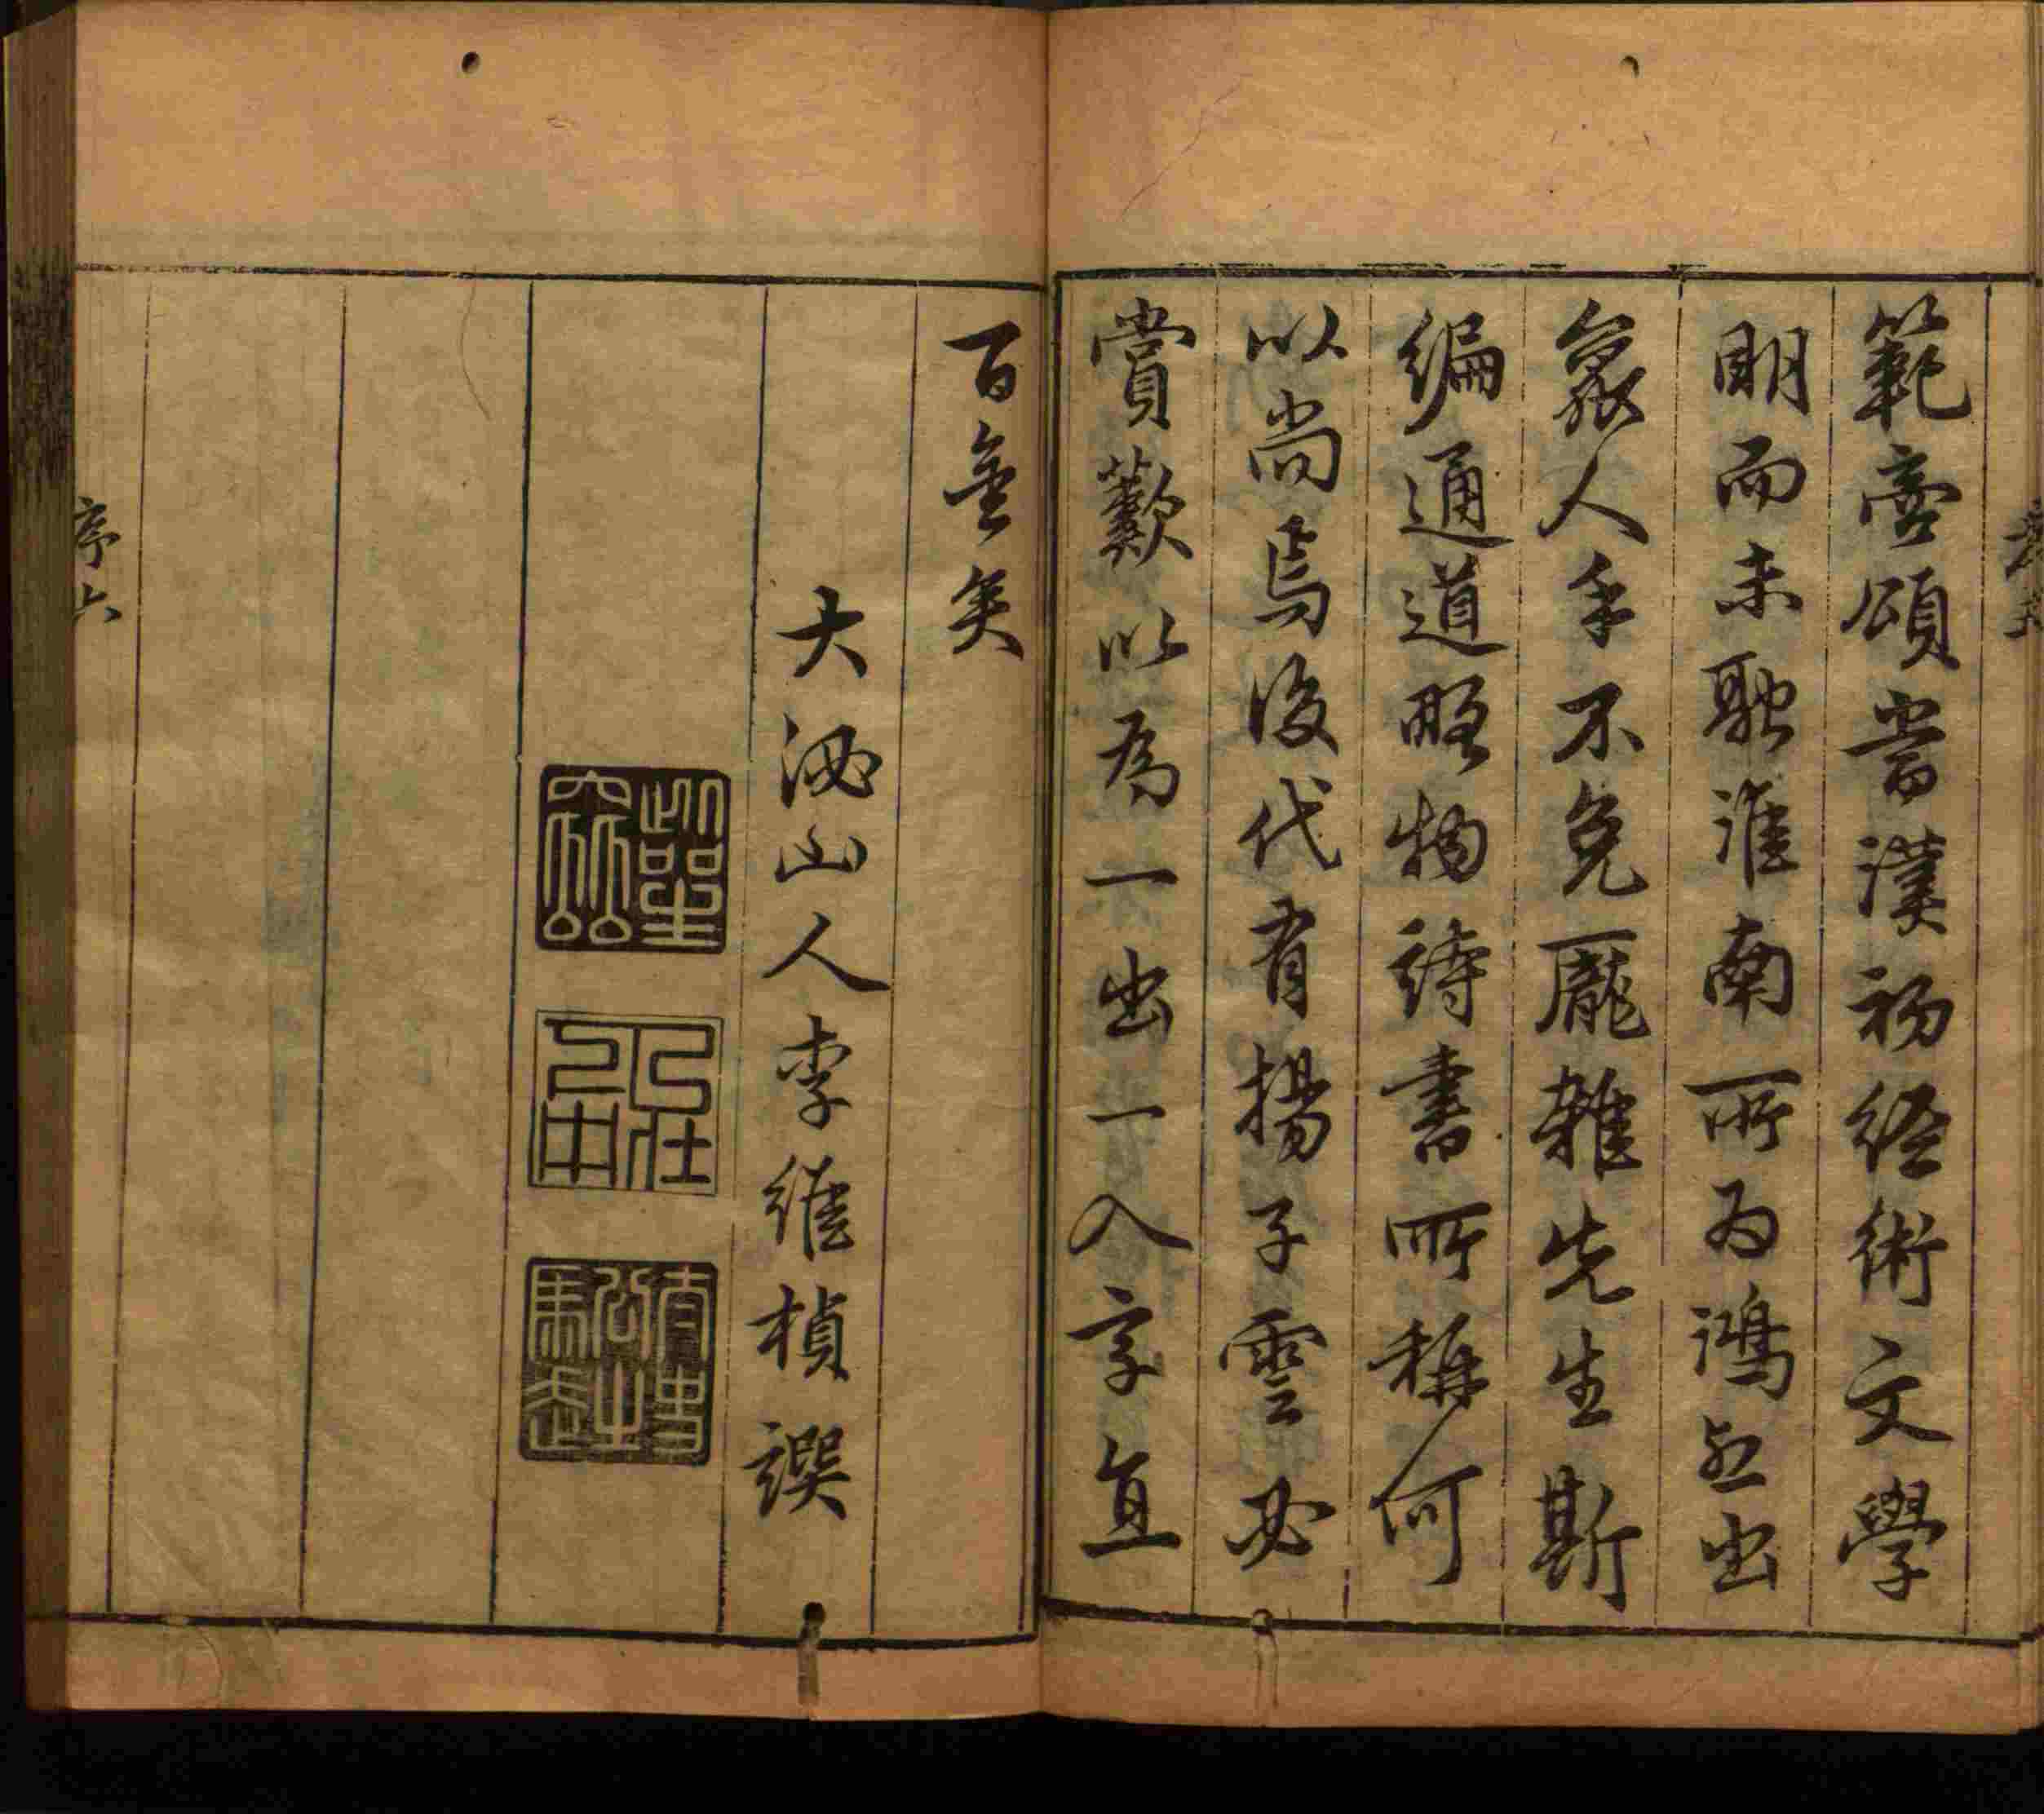 範商頌漢初經術文學
明而未融淮南所為鴻烈出
衆人手不免龐雜先生斯
編通道略物詩書所稱何
以尚焉後代有揚子雲必
賞歎以為一出一入字直
百金矣
大泌山人李維楨譔
序六